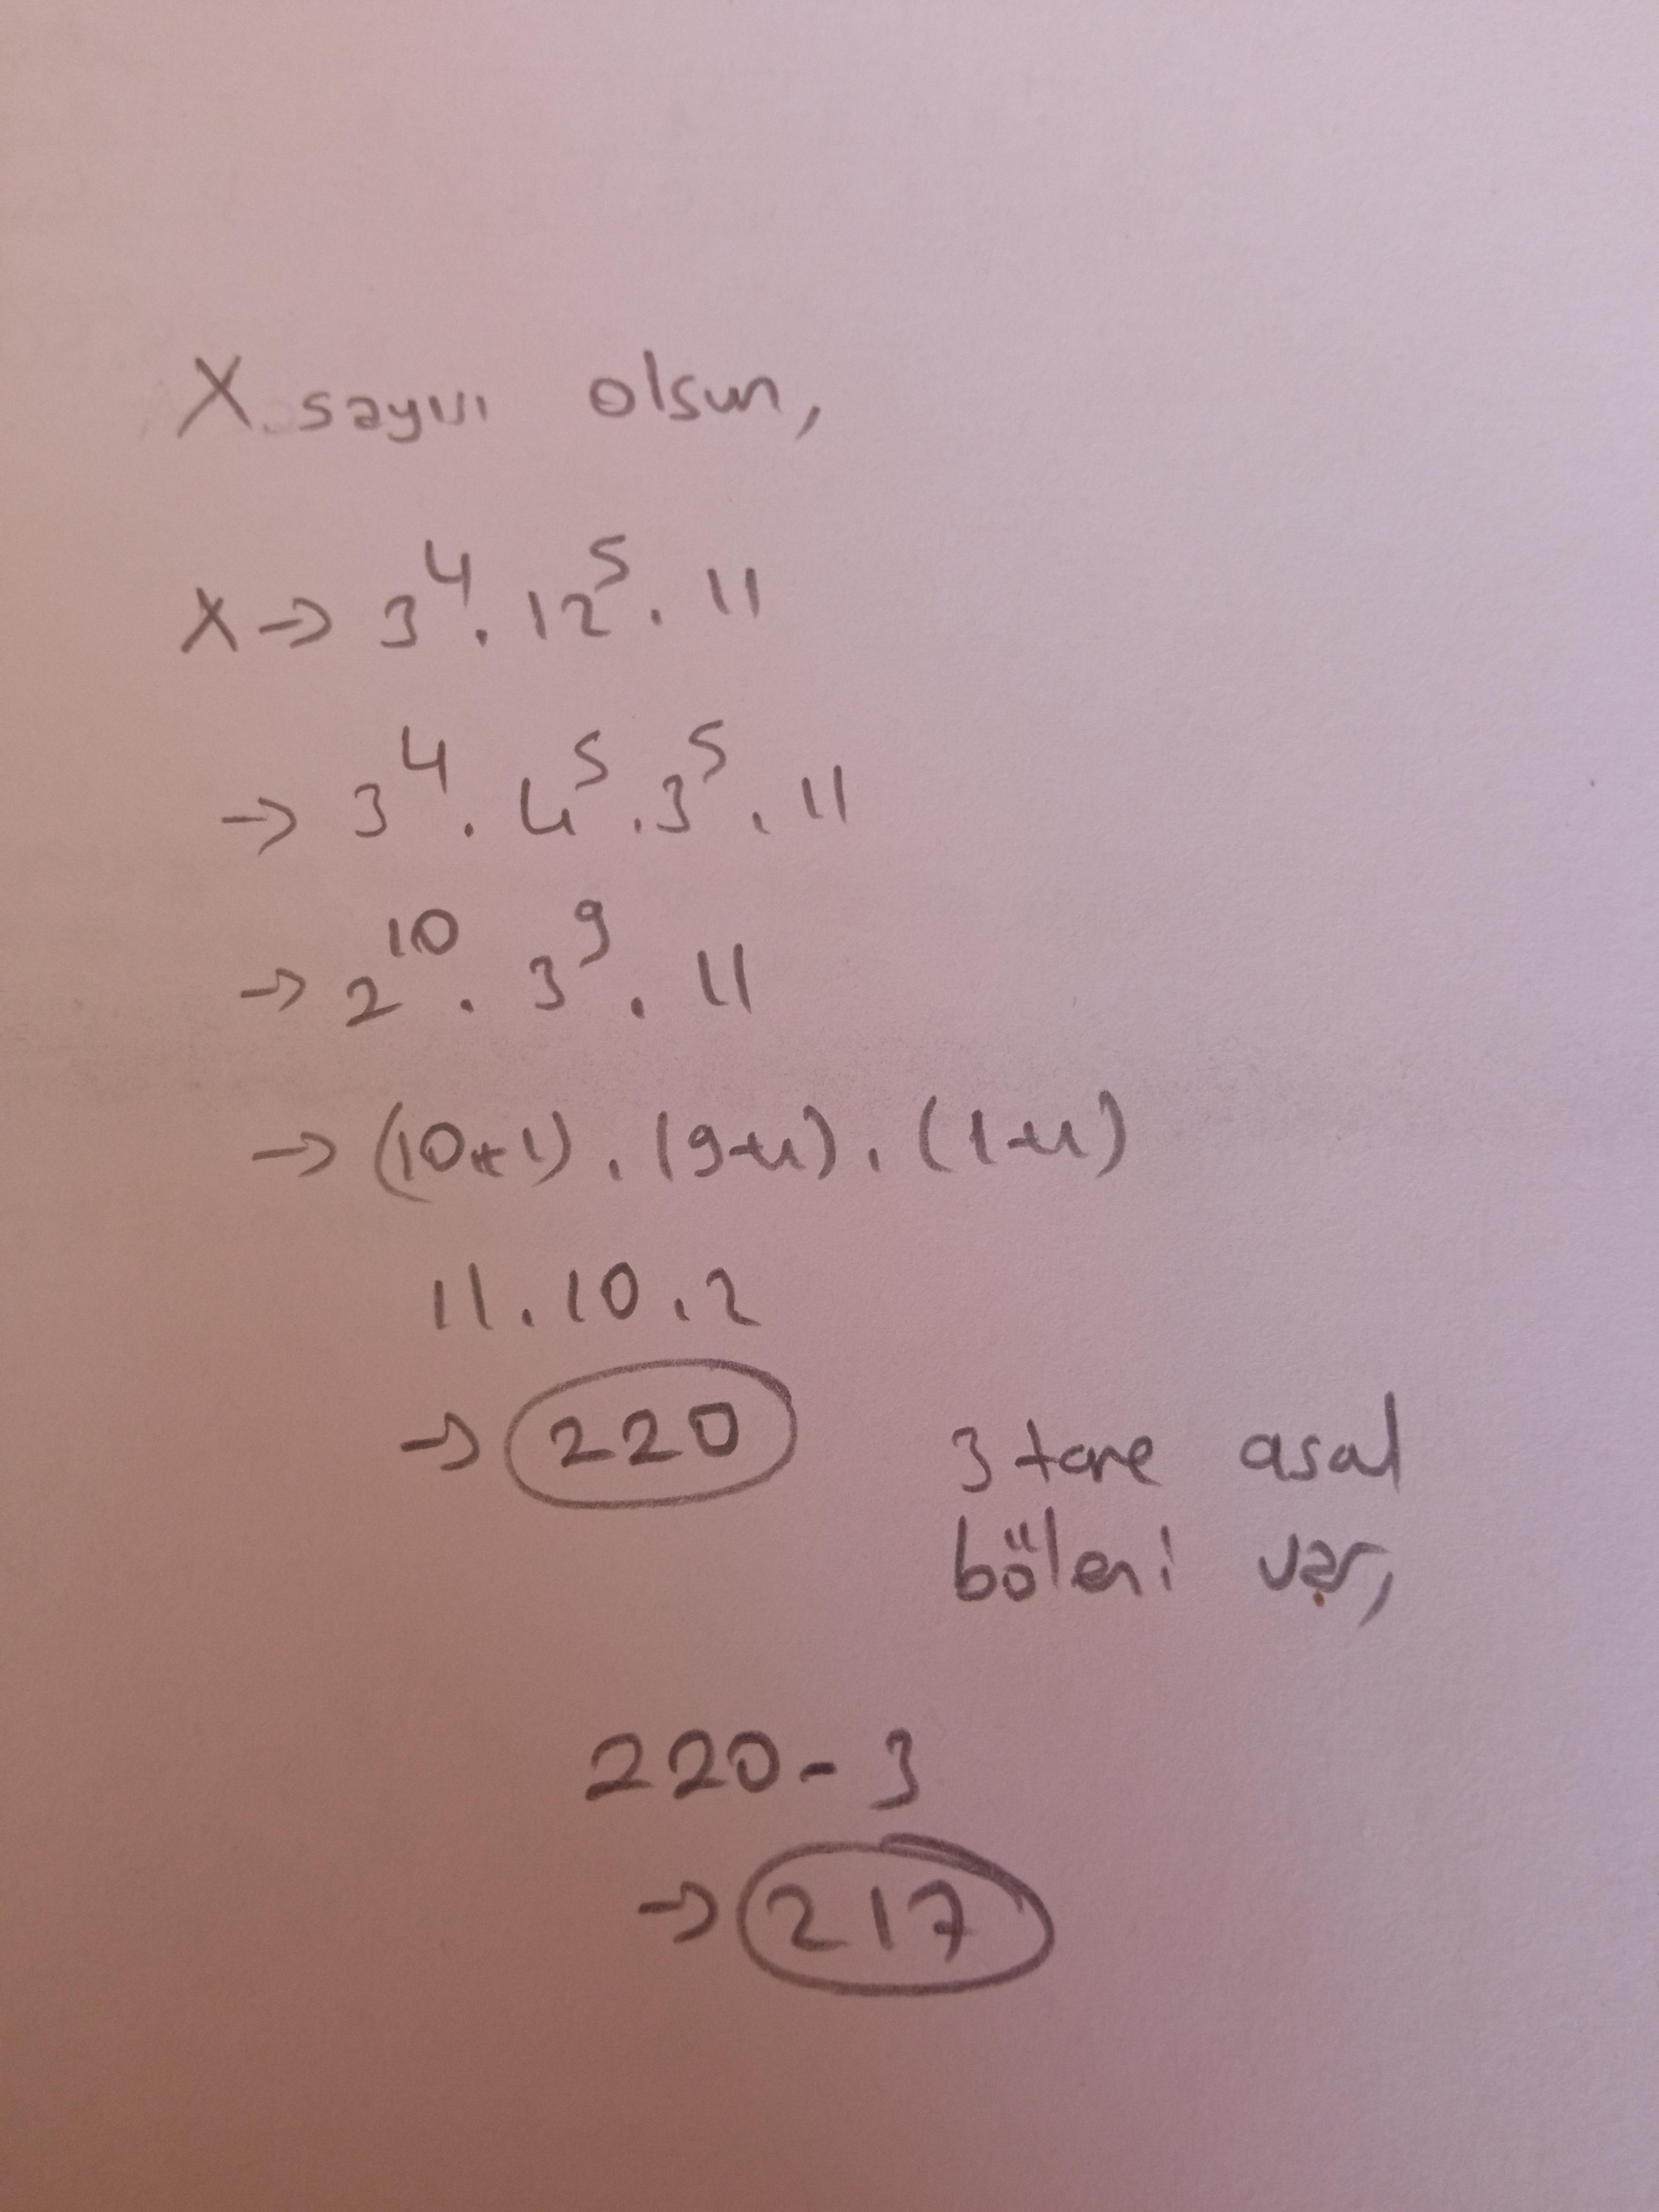 X sayısı olsun,
X → 3⁴ . 12⁵ . 11
→ 3⁴ . 4⁵ . 3⁵ . 11
→ 2¹⁰ . 3⁹ . 11
→ (10+1) . (9+1) . (1+1)
11 . 10 . 2
→ 220
3 tane asal
böleni var,
220 - 3
→ 217